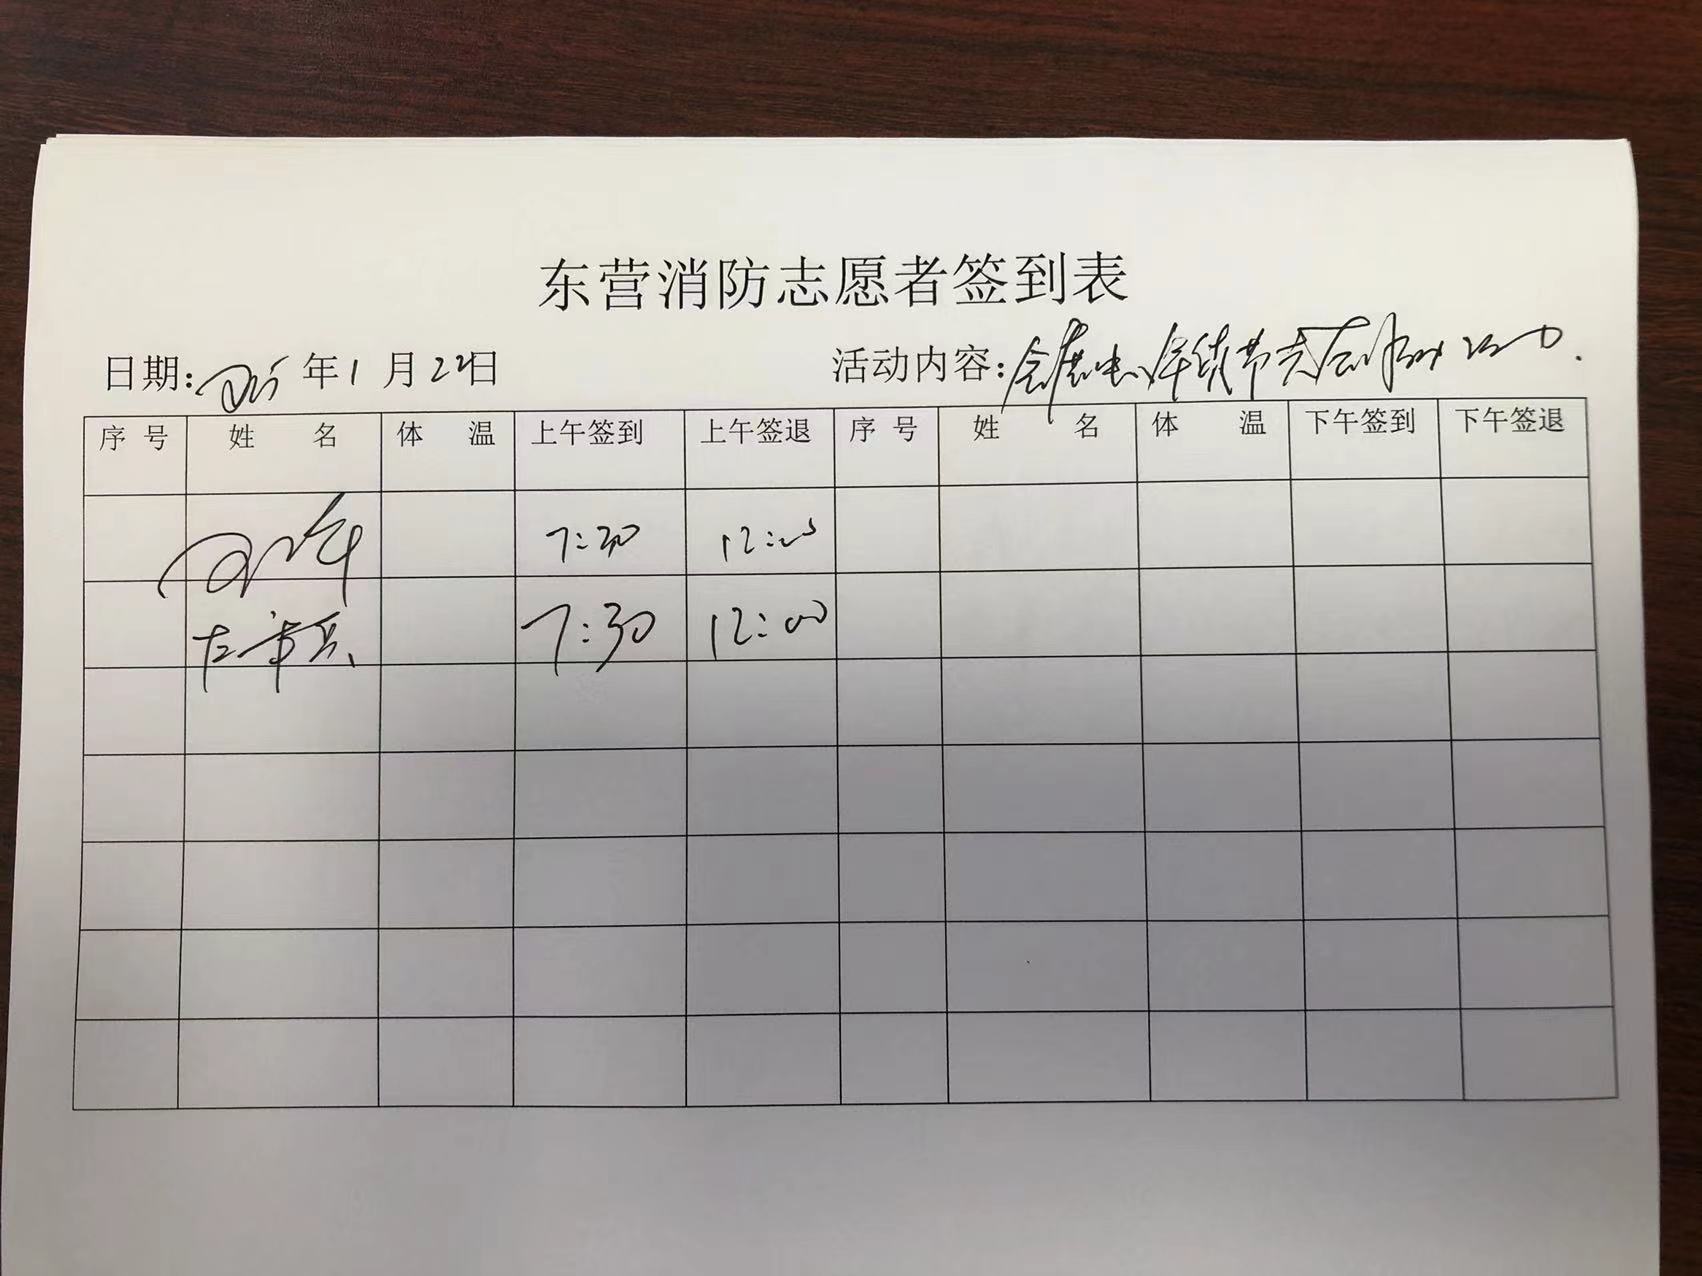 东营消防志愿者签到表
日期: 年1月22日 活动内容:会展中心年货节
序号 姓名 体温 上午签到 上午签退 序号 姓名 体温 下午签到 下午签退
7:30 12:00
7:30 12:00